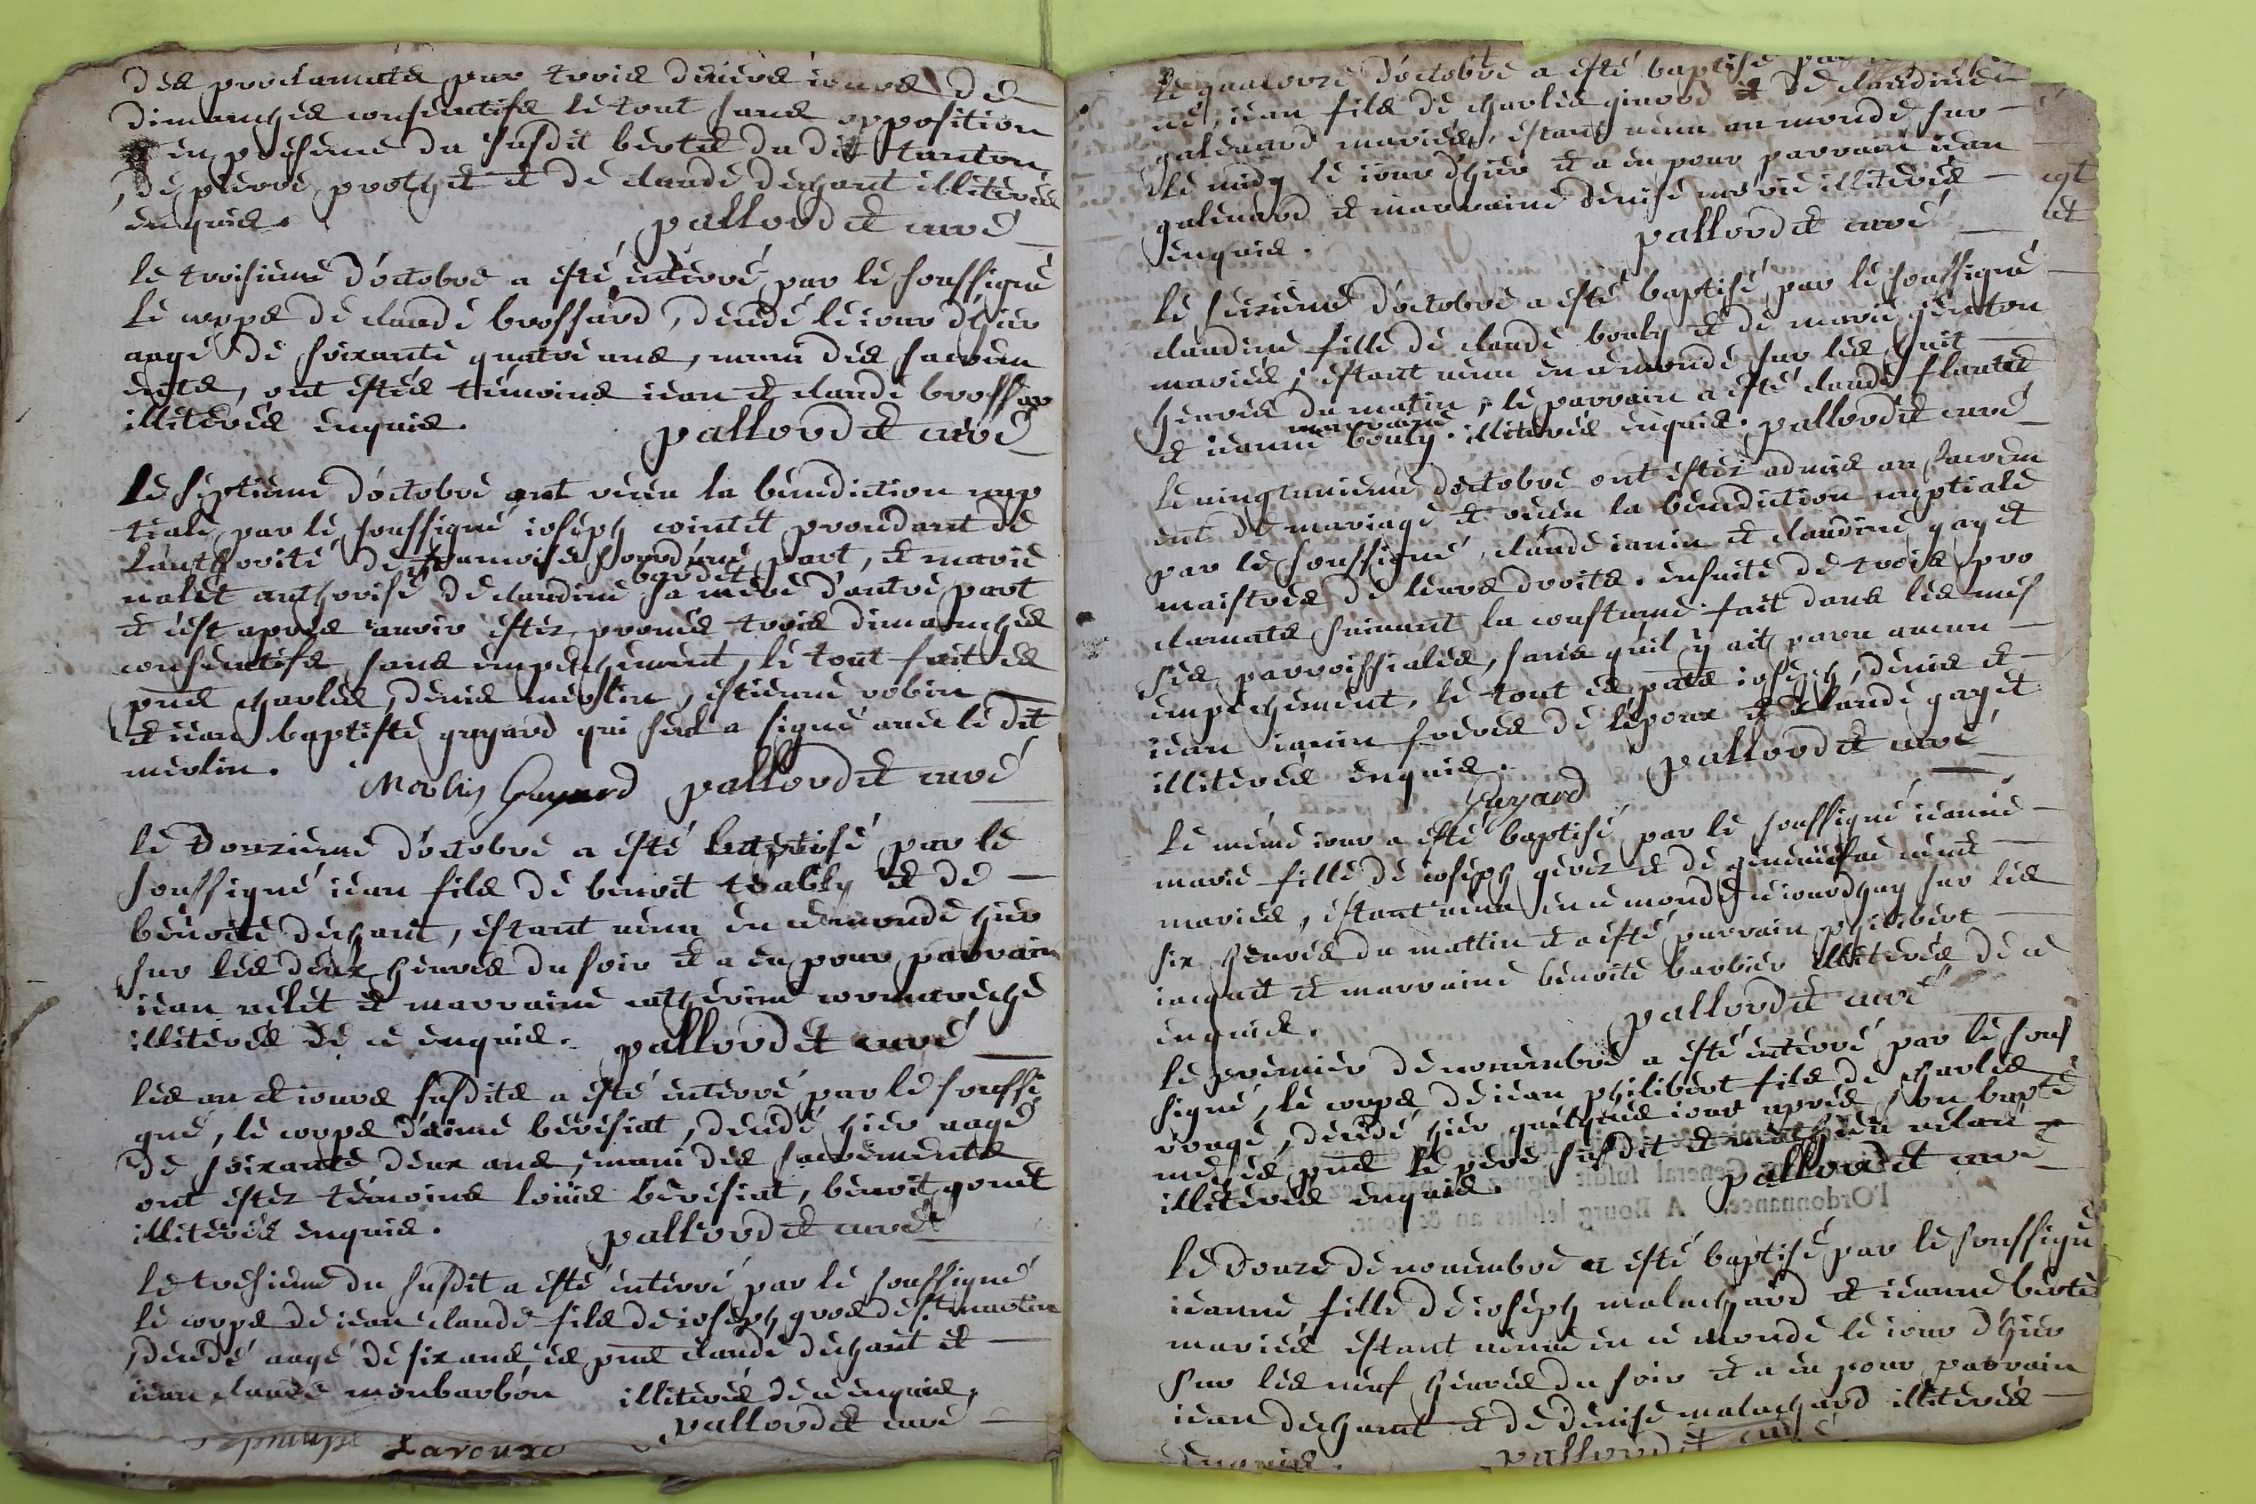 des proclamats par trois divers iours de
dimanches consecutifs le tout sans opposition
et en presence du susdit bertet du dit tanton
de pierre prothet et de claude dechant illiterés
enquis. pallordet curé
le troisieme d'octobre a esté enterré par le soussigné
le corps de claude brossard, decedé le iour d'hier
aagé de soixante quatre ans, muni des sacrem
ents, ont estés témoins iean et claude brossar
illiterés enquis. pallordet curé
le septieme d'octobre ont receu la benediction nup
tiale par le soussigné ioseph cointet procedant de
l'authorité de d'une part, et marie
nalet authorisé de claudine bardet sa mere d'autre part
et c'est apres avoir estez pronés trois dimanches
consecutifs sans empechement, le tout fait es
pnces charles, denis merlin, estienne robin
et iean baptiste gayard qui seul a signé avec le dit
merlin. Merlin Gayard pallordet curé
le douzieme d'octobre a esté baptisé par le
soussigné iean fils de benoit teably et de
benoite dechant, estant venu en ce monde hier
sur les deux heures du soir et a eu pour parrain
iean velet et marraine catherine cormareche
illiterés de ce enquis. pallordet curé
les an et iours susdits a esté enterré par le soussi
gné, le corps d'aimé beresiat, decedé hier aagé
de soixante deux ans, muni des sacrements
ont estez témoins loüis beresiat, benoit gonet
illiterés enquis. pallordet curé
le tresieme du susdit a esté enterré par le soussigné
le corps de iean claude fils de ioseph gros de st martin
decedé aagé de six ans, es pnces claude dechant et
iean claude monbarbon illiterés de ce enquis.
pallordet curé
Laroux
le quatorze d'octobre a esté baptisé par
né, iean fils de charles giroud et de claudine
galenard mariés, estant venu au monde sur
le midy le iour d'hier et a eu pour parrain iean
galenard et marraine denise morie illiterés
enquis. pallordet curé
le seizieme d'octobre a esté baptisé par le soussigné
claudine fille de claude bouly et de marie senton
mariés, estant venu en ce monde sur les huit
heures du matin, le parrain a esté claude flantet
et marraine ieanne bouly. illiterés enquis. pallordet curé
le vingtunieme d'octobre ont estez admis au sacrem
ent de mariage et receu la benediction nuptiale
par le soussigné, claude ianin et claudine gayet
maistres de leurs droits. ensuite de trois pro
clamats suivant la coustume fait dans les mes
ses parroissiales, sans quil y ait paru aucun
empechement, le tout es pnces ioseph, denis et
iean ianin freres de l'epoux et claude gayet
illiterés enquis. pallordet curé
Gayard
le méme iour a esté baptisé par le soussigné ieanne
marie fille de ioseph gerez et de genevieve
mariés, estant venu en ce monde ce iourdhuy sur les
six heures du mattin et a esté parrain philibert
iacquet et marraine benoite barbier illiterés de ce
enquis. pallordet curé
le premier de novembre a esté enterré par le sous
signé, le corps de iean philibert fils de charles
rongé, decedé hier quelques iour apres son bapte
me, es pnces le pere susdit et mathieu
illiterés enquis. pallordet curé
le douze de novembre a esté baptisé par le soussigné
ieanne fille de ioseph malachard et ieanne bertet
mariés estant venue en ce monde le iour d'hier
sur les neuf heures du soir et a eu pour parrain
iean dechant et de denise malachard illiterés
enquis. pallordet curé